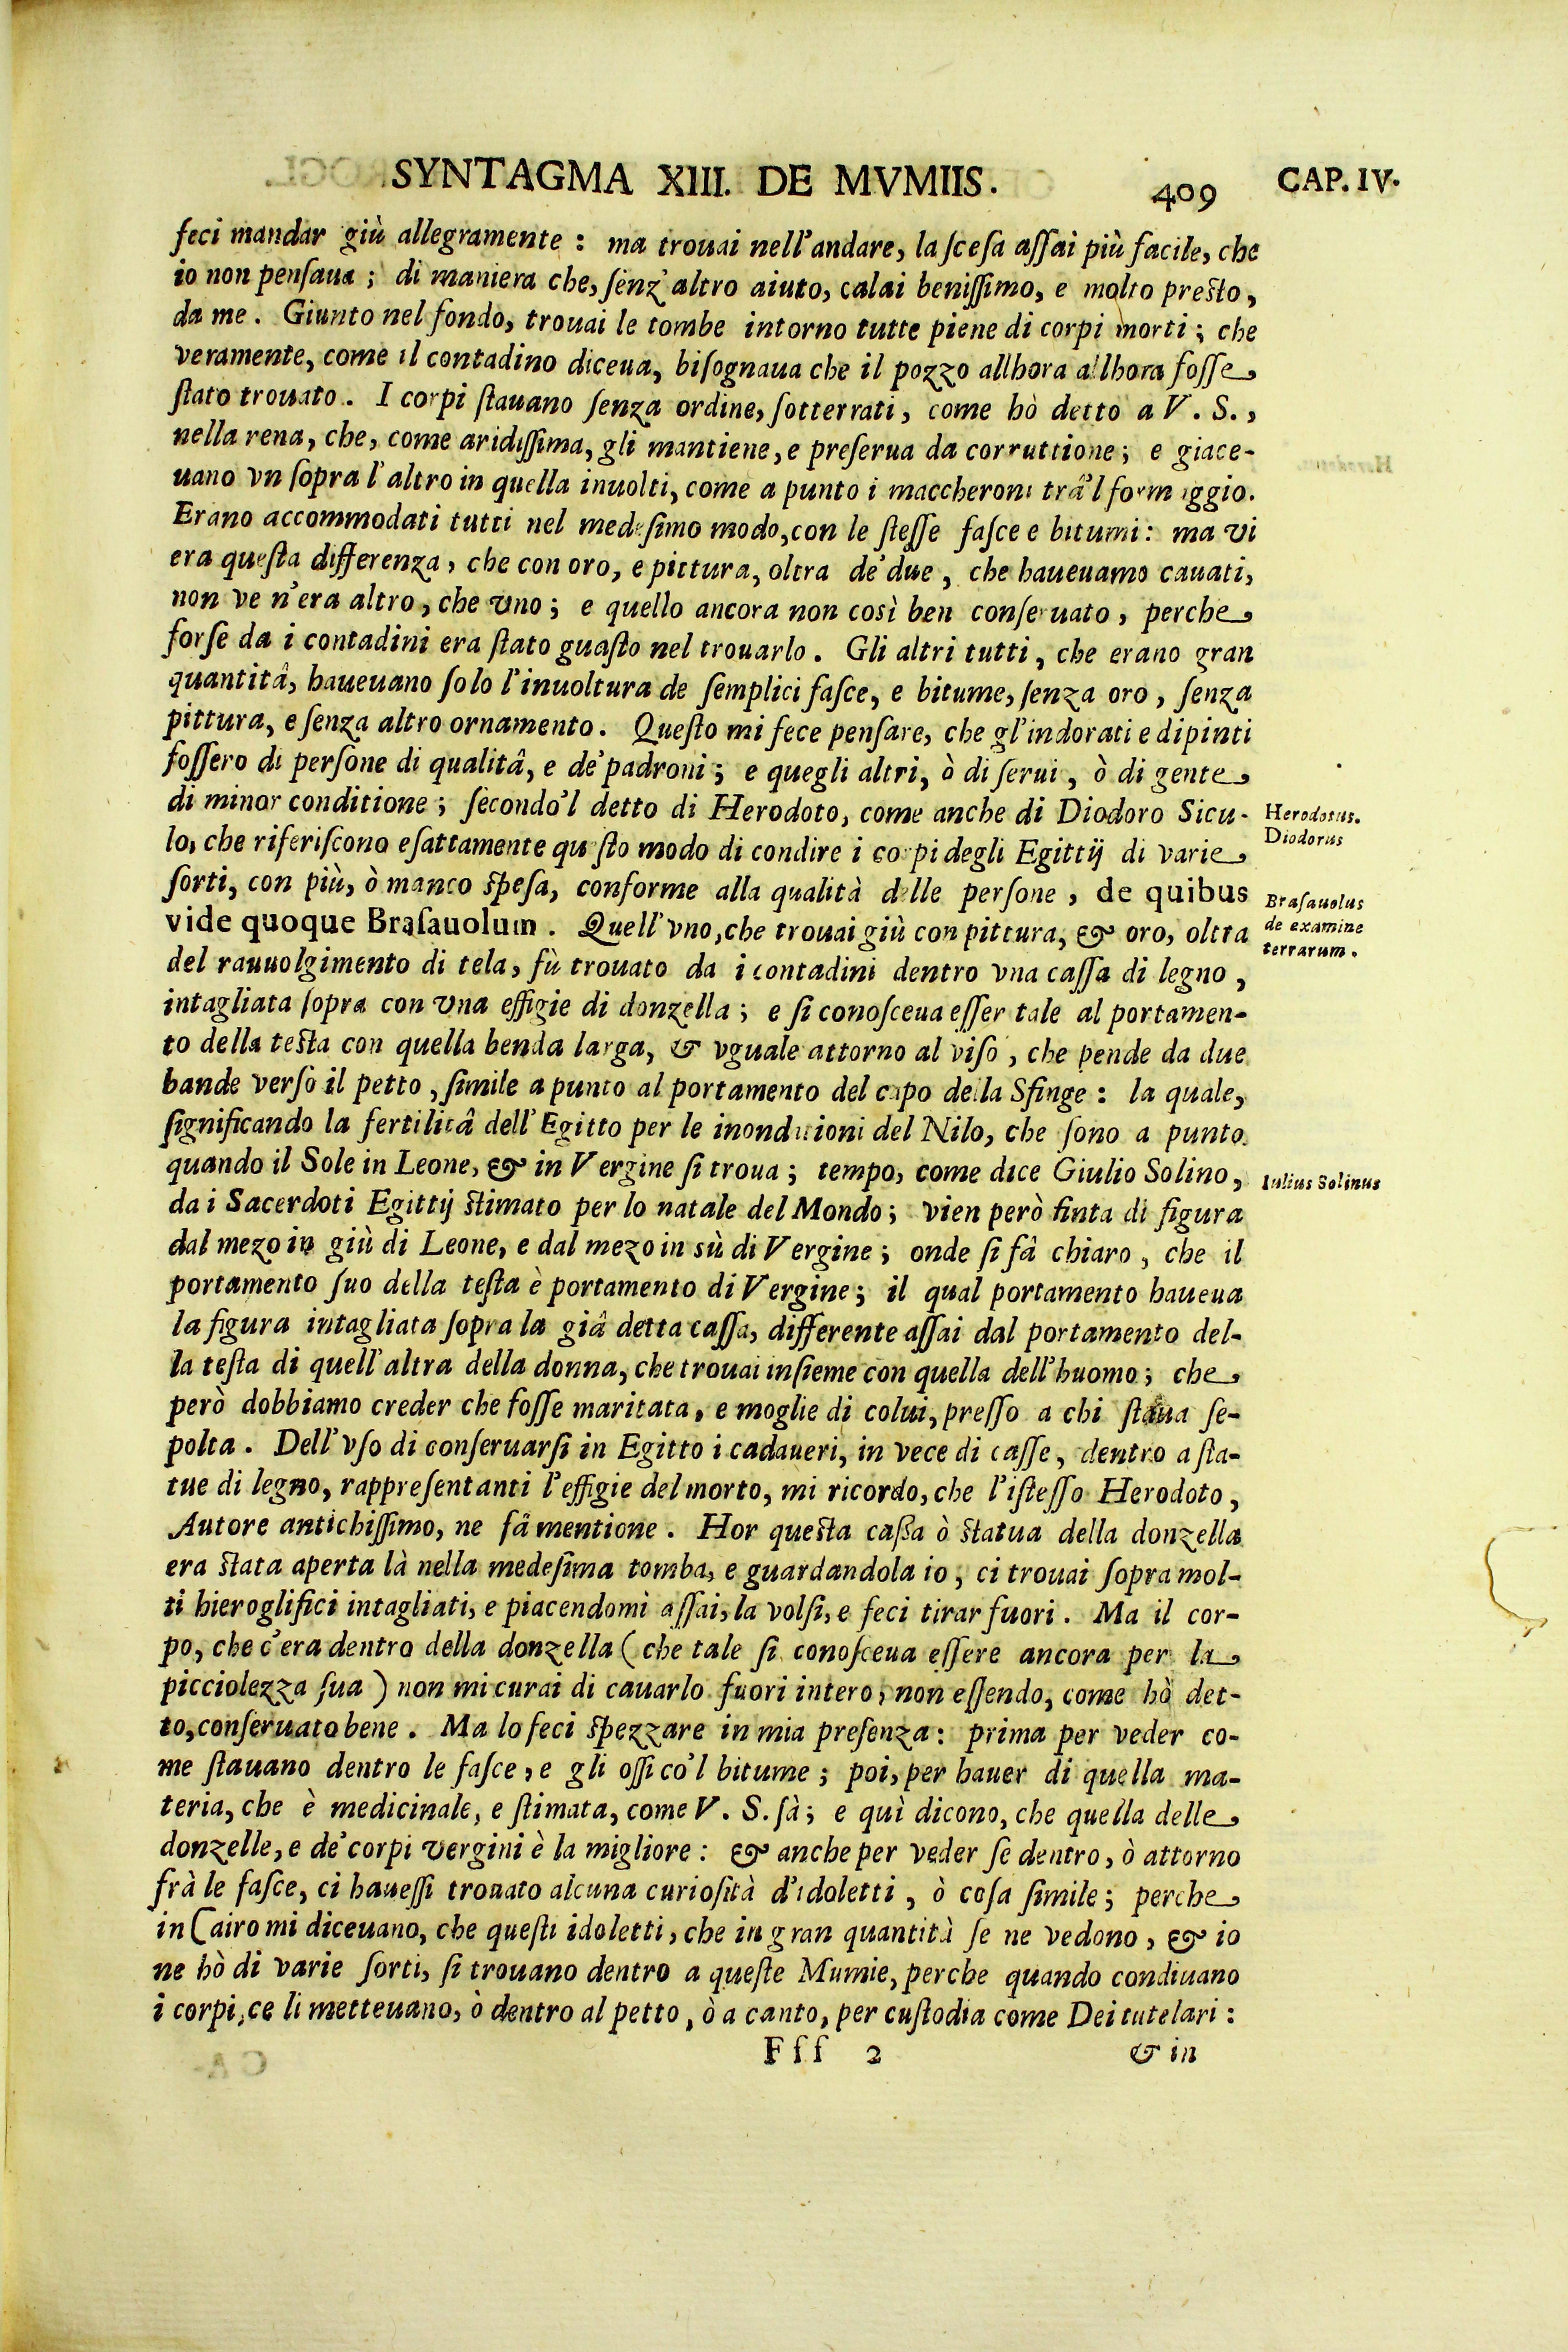 SYNTAGMA XIII. DE MVMIIS.
409
CAP. IV.
feci mandar giù allegramente : ma trouai nell'andare, la ſceſa aſſai più facile, che
io non penſaua ; di maniera che, ſenz' altro aiuto, calai beniſſimo, e molto preſto ,
da me . Giunto nel fondo, trouai le tombe intorno tutte piene di corpi morti ; che
veramente, come il contadino diceua, biſognaua che il pozzo allhora allhora foſſe
ſtato trouato . I corpi ſtauano ſenza ordine, ſotterrati , come hò detto a V . S. ,
nella rena, che, come aridiſſima, gli mantiene, e preſerua da corruttione ; e giace-
uano vn ſopra l'altro in quella inuolti, come a punto i maccheroni trâ'l formaggio.
Erano accommodati tutti nel medeſimo modo, con le ſteſſe faſce e bitumi : ma vi
era queſta differenza , che con oro, e pittura, oltra de' due , che haueuamo cauati,
non ve n'era altro , che vno ; e quello ancora non così ben conſeruato , perche
forſe da i contadini era ſtato guaſto nel trouarlo . Gli altri tutti , che erano gran
quantitâ, haueuano ſolo l'inuoltura de ſemplici faſce, e bitume, ſenza oro , ſenza
pittura, e ſenza altro ornamento . Queſto mi fece penſare, che gl'indorati e dipinti
foſſero di perſone di qualitâ, e de' padroni ; e quegli altri, ò di ſerui , ò di gente
di minor conditione ; ſecondo'l detto di Herodoto, come anche di Diodoro Sicu-
lo, che riferiſcono eſattamente queſto modo di condire i corpi degli Egittij di varie
ſorti, con più, ò manco ſpeſa, conforme alla qualità delle perſone , de quibus
vide quoque Braſauolum . Quell'vno, che trouai giù con pittura, & oro, oltra
del rauuolgimento di tela, fù trouato da i contadini dentro vna caſſa di legno ,
intagliata ſopra con vna effigie di donzella ; e ſi conoſceua eſſer tale al portamen-
to della teſta con quella benda larga, & vguale attorno al viſo , che pende da due
bande verſo il petto , ſimile a punto al portamento del capo della Sfinge : la quale,
ſignificando la fertilitâ dell' Egitto per le inondationi del Nilo, che ſono a punto
quando il Sole in Leone, & in Vergine ſi troua ; tempo, come dice Giulio Solino ,
da i Sacerdoti Egittij ſtimato per lo natale del Mondo ; vien però finta di figura
dal mezo in giù di Leone, e dal mezo in sù di Vergine ; onde ſi fâ chiaro , che il
portamento ſuo della teſta è portamento di Vergine ; il qual portamento haueua
la figura intagliata ſopra la giâ detta caſſa, differente aſſai dal portamento del-
la teſta di quell'altra della donna, che trouai inſieme con quella dell'huomo ; che
però dobbiamo creder che foſſe maritata , e moglie di colui, preſſo a chi ſtaua ſe-
polta . Dell'vſo di conſeruarſi in Egitto i cadaueri, in vece di caſſe, dentro a ſta-
tue di legno, rappreſentanti l'effigie del morto, mi ricordo, che l'iſteſſo Herodoto ,
Autore antichiſſimo, ne fâ mentione . Hor queſta caßa ò ſtatua della donzella
era ſtata aperta là nella medeſima tomba, e guardandola io , ci trouai ſopra mol-
ti hieroglifici intagliati, e piacendomi aſſai, la volſi, e feci tirar fuori . Ma il cor-
po, che c'era dentro della donzella ( che tale ſi conoſceua eſſere ancora per la
picciolezza ſua ) non mi curai di cauarlo fuori intero, non eſſendo, come hò det-
to, conſeruato bene . Ma lo feci ſpezzare in mia preſenza : prima per veder co-
me ſtauano dentro le faſce , e gli oſſi co'l bitume ; poi, per hauer di quella ma-
teria, che è medicinale, e ſtimata, come V . S. ſà ; e quì dicono, che quella delle
donzelle, e de' corpi vergini è la migliore : & anche per veder ſe dentro, ò attorno
frà le faſce, ci haueſſi trouato alcuna curioſità d'idoletti , ò coſa ſimile ; perche
in Cairo mi diceuano, che queſti idoletti, che in gran quantità ſe ne vedono , & io
ne hò di varie ſorti, ſi trouano dentro a queſte Mumie, perche quando condiuano
i corpi, ce li metteuano, ò dentro al petto , ò a canto, per cuſtodia come Dei tutelari :
Fff 2
& in
Herodotus.
Diodorus
Braſauolus
de examine
terrarum .
Iulius Solinus